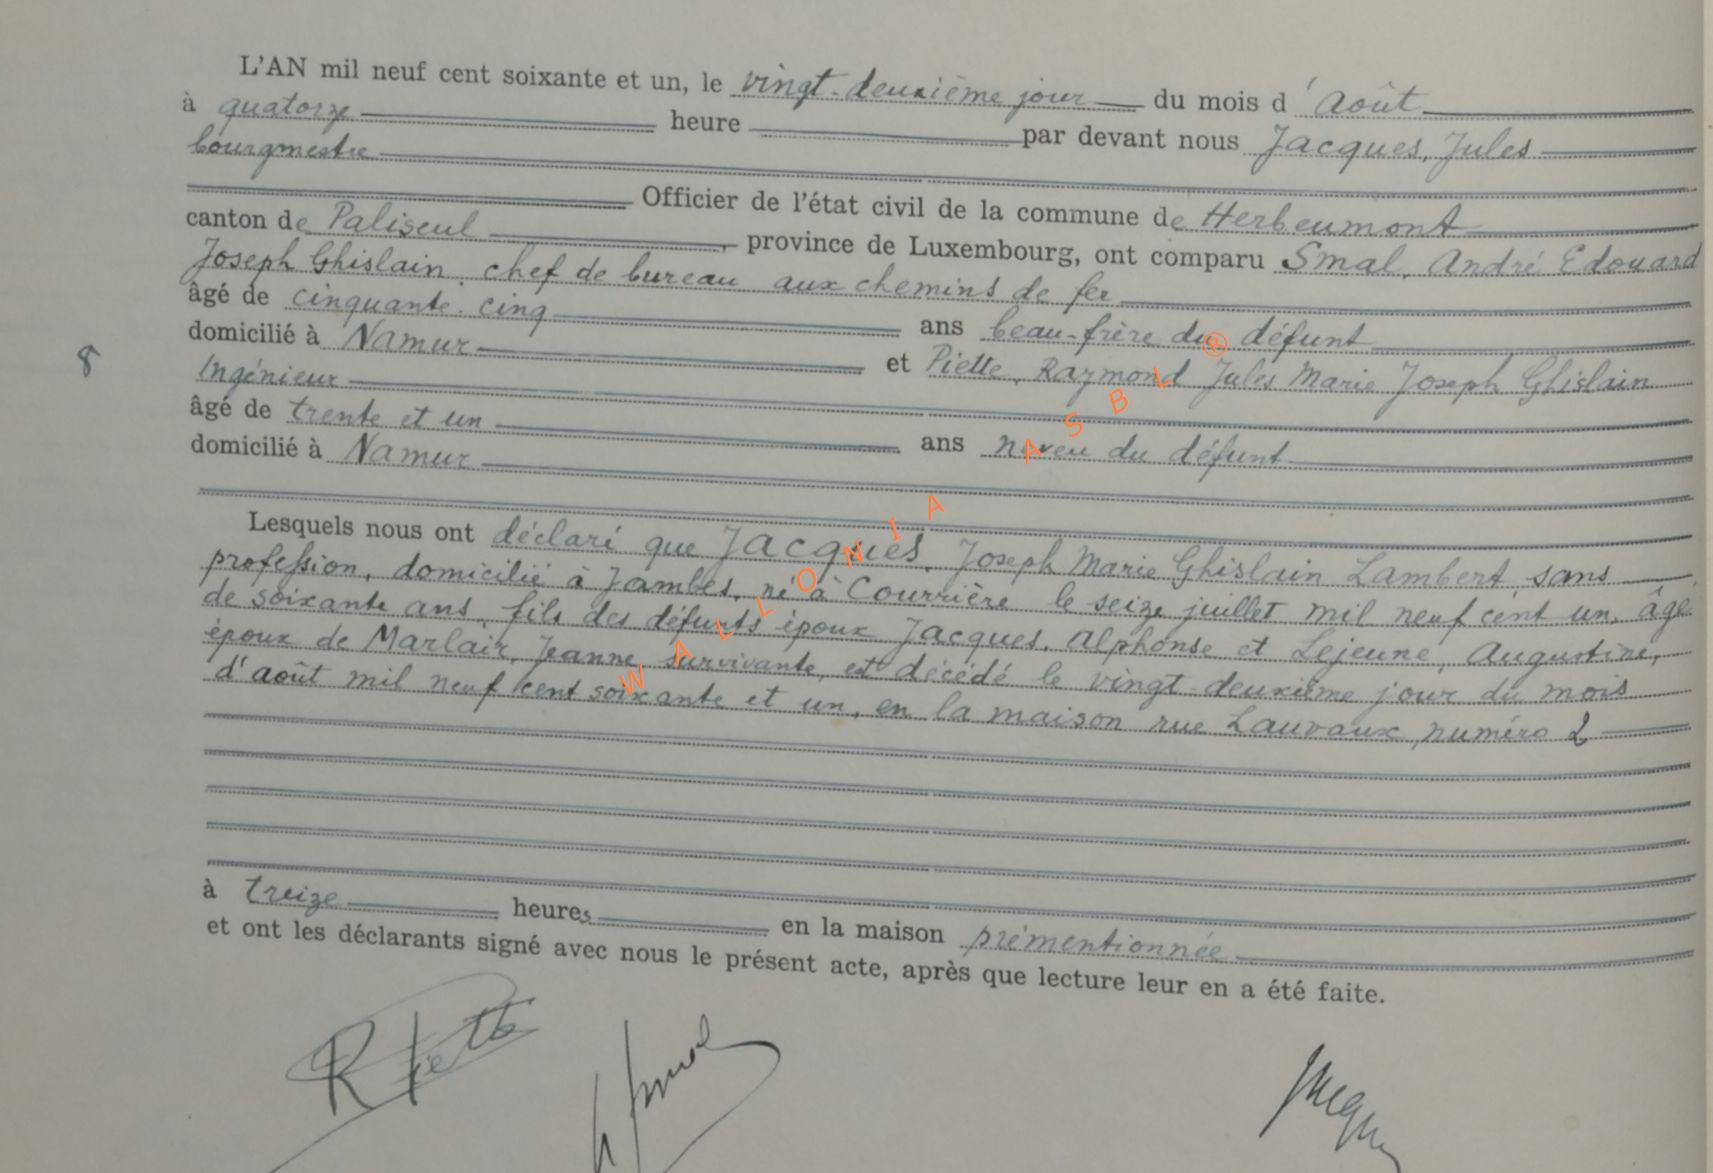 L'AN mil neuf cent soixante et un, le vingt-deuxième jour du mois d'Août
à quatorze heure par devant nous Jacques, Jules
bourgmestre
Officier de l'état civil de la commune de Herbeumont
canton de Paliseul, province de Luxembourg, ont comparu Smal, André Edouard
Joseph Ghislain, chef de bureau aux chemins de fer
âgé de cinquante-cinq ans beau-frère du défunt
domicilié à Namur et Piette, Raymond Jules Marie Joseph Ghislain
Ingénieur
âgé de trente et un ans neveu du défunt
domicilié à Namur
8
Lesquels nous ont déclaré que Jacques, Joseph Marie Ghislain Lambert, sans
profession, domicilié à Jambes, né à Courrière le seize juillet mil neuf cent un, âgé
de soixante ans, fils des défunts époux Jacques, Alphonse et Lejeune, Augustine,
époux de Marlair, Jeanne, survivante, est décédé le vingt-deuxième jour du mois
d'août mil neuf cent soixante et un, en la maison rue Lauvaux, numéro 2
à treize heures en la maison prémentionnée
et ont les déclarants signé avec nous le présent acte, après que lecture leur en a été faite.
R Piette
Smal
Jacques
WALLONIA ASBL ®